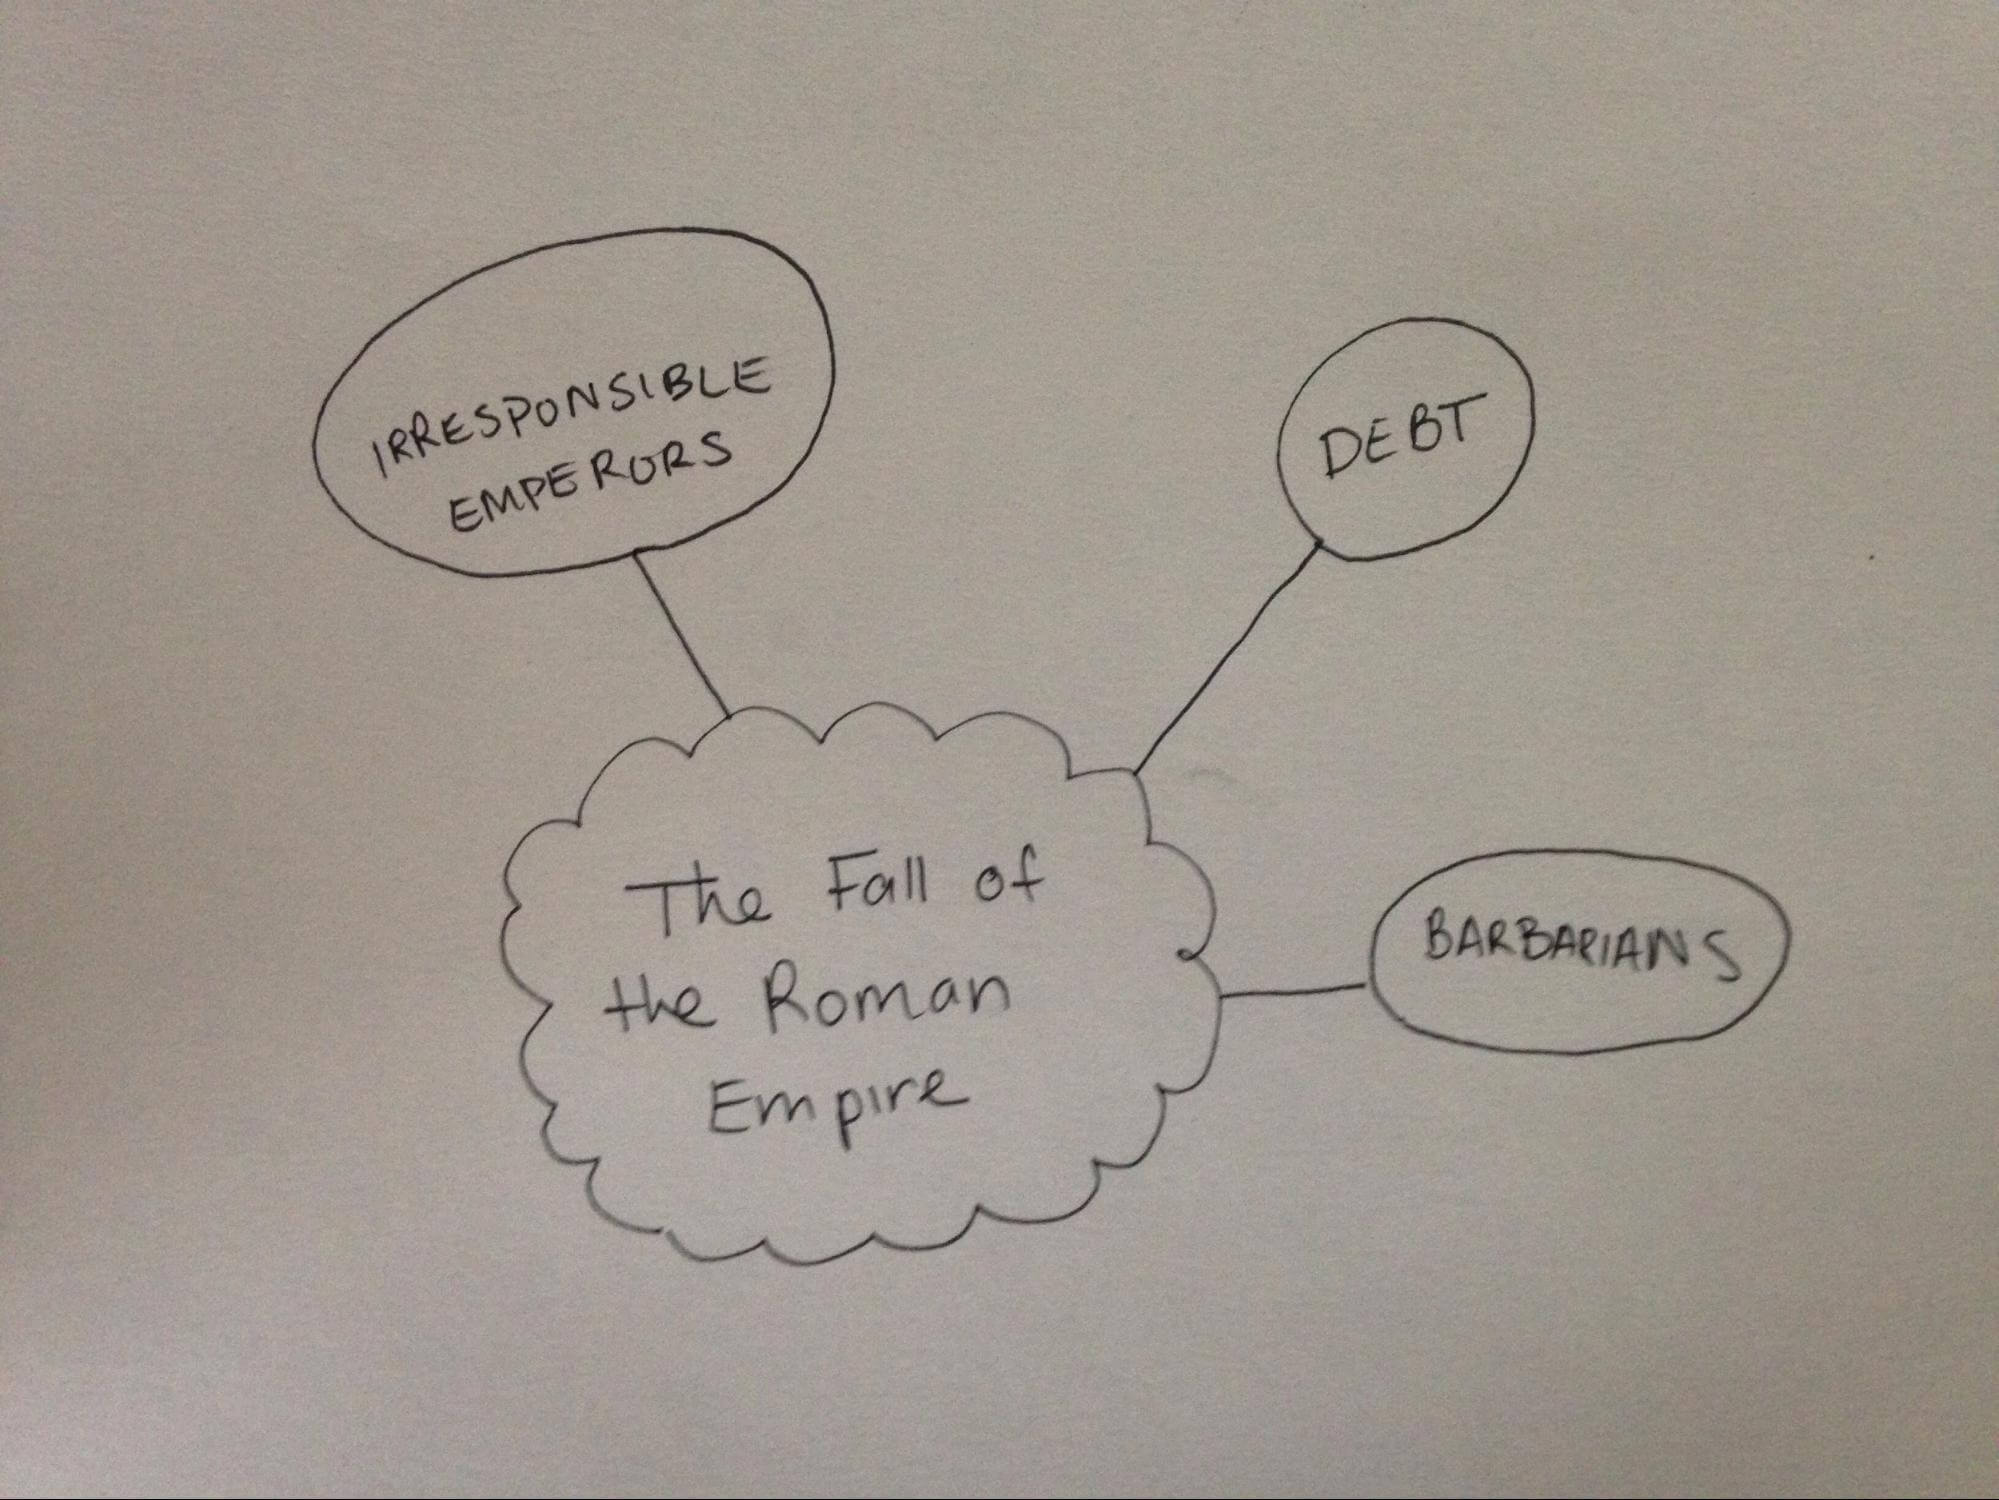 IRRESPONSIBLE
EMPERORS
DEBT
The Fall of
the Roman
Empire
BARBARIANS